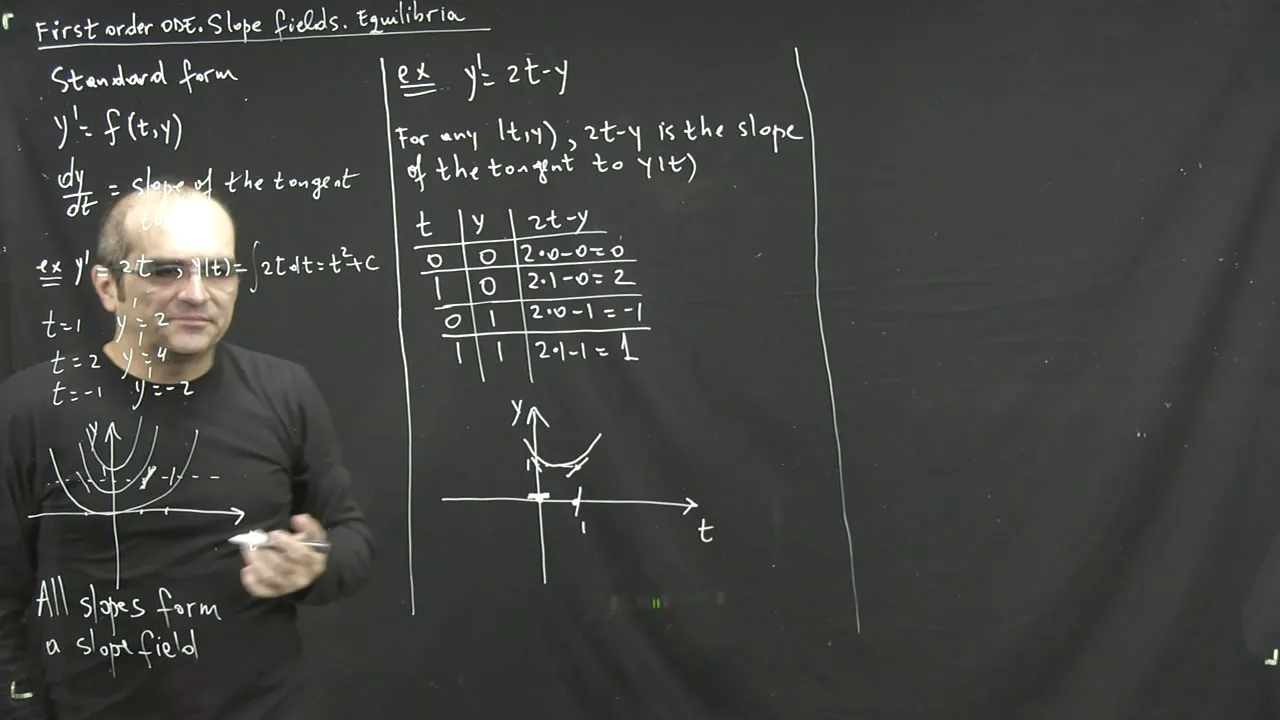 First order ODE. Slope fields. Equilibria
Standard form
y' = f(t,y)
dy/dt = slope of the tangent
to
ex y' = 2t → y(t) = ∫ 2t dt = t² + C
t=1 y' = 2
t=2 y' = 4
t=-1 y' = -2
y
All slopes form
a slope field
ex y' = 2t-y
For any (t,y), 2t-y is the slope
of the tangent to y(t)
t y 2t-y
0 0 2·0-0=0
1 0 2·1-0=2
0 1 2·0-1=-1
1 1 2·1-1=1
y
1
1
t